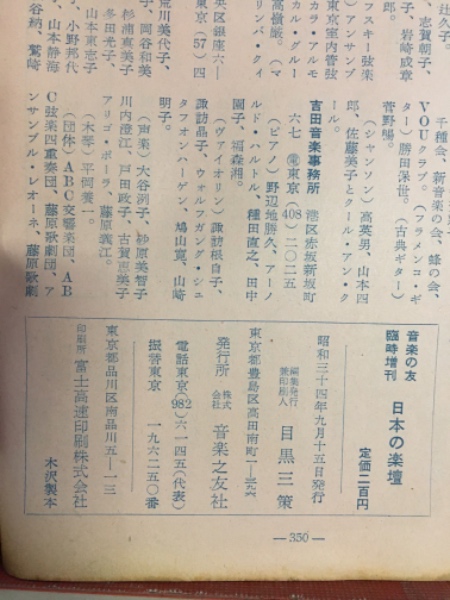 辻久子。
、志賀朝子、
子、岩崎成章
郎。
フスキー弦楽
)アンサンブ
東京室内管弦
カラ・アルモ
カル・グルー
高嶺巌。(マ
リンバ・クイ
央区銀座六―
東京(57)四
荒川美代子、
子、岡谷和美
、杉浦真美子
冬田光子、
山本恵志子
、小野邦代
、山本静海
谷納、鷲崎
千種会、新音楽の会、蜂の会、
VOUクラブ。(フラメンコ・ギ
ター)勝田保世。(古典ギター)
菅野暢。
(シャンソン)高英男、山本四
郎、佐藤美子とクール・アン・ク
ール。
吉田音楽事務所 港区赤坂新坂町
六七 (電東京(408)二〇二五
(ピアノ)野辺地勝久、アーノ
ルド・ハルトル、種田直之、田中
園子、福森湘。
(ヴァイオリン)諏訪根自子、
諏訪晶子、ウォルフガング・シュ
タフォンハーゲン、鳩山寛、山崎
明子。
(声楽)大谷洌子、砂原美智子
川内澄江、戸田政子、古賀恵美子
アリゴ・ポーラ、藤原義江。
(木琴)平岡養一。
(団体)ABC交響楽団、AB
C弦楽四重奏団、藤原歌劇団、ア
ンサンブル・レオーネ、藤原歌劇
音楽の友
臨時増刊
日本の楽壇
定価二百円
昭和三十四年九月十五日発行
編集発行
兼印刷人
目黒三策
東京都豊島区高田南町一ノ三九六
発行所
株式
会社
音楽之友社
電話東京(982)六一四五(代表)
振替東京 一九六二五〇番
東京都品川区南品川五ノ一三
印刷所 富士高速印刷株式会社
木沢製本
—350—